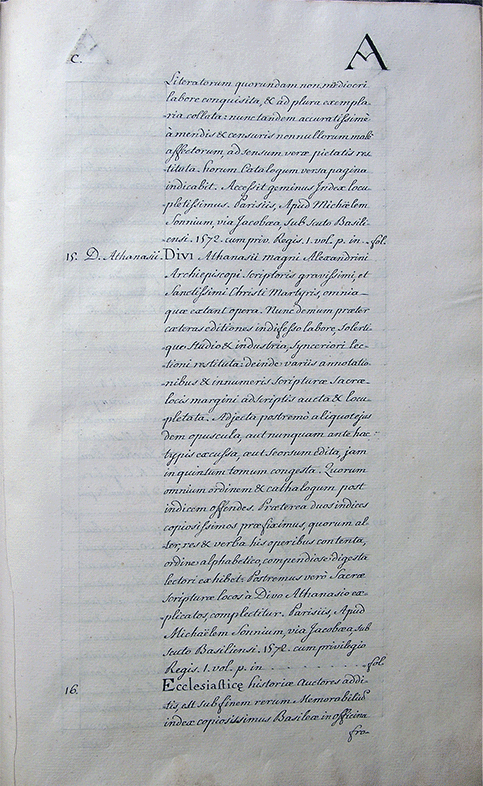 C.
A
Literatorum quorundam non mediocri
labore conquisita, & ad plura exempla-
ria collata: nunc tandem accuratissimè
à mendis & censuris nonnullorum malè
affectorum, ad sensum veræ pietatis res-
tituta. horum Catalogum versa pagina
indicabit. Accessit geminus Index locu-
pletissimus. Parisiis, Apud Michäelem
Sonnium, via Jacobæa, sub scuto Basili-
ensi. 1572. cum priv. Regis. 1. vol. p. in - fol.
15. D. Athanasii. Divi Athanasii magni Alexandrini
Archiepiscopi Scriptoris gravissimi, et
Sanctissimi Christi Martyris, omnia-
quæ extant opera. Nunc demum præter
cæteras editiones indefesso labore, solerti-
que Studio & industria, synceriori lec-
tioni restituta: deinde variis annotatio-
nibus & innumeris Scripturæ Sacræ-
locis margini adscriptis aucta & locu-
pletata. Adjecta postremò aliquot ejus
dem opuscula, aut nunquam ante hac
typis excussa, aut seorsum edita, jam
in quintum tomum congesta. Quorum
omnium ordinem & cathalogum post
indicem offendes. Præterea duos indices
copiosissimos præfiximus, quorum al-
ter, res & verba his operibus contenta,
ordine alphabetico, compendiose digesta
lectori exhibet: Postremus verò Sacræ
Scripturæ locos à Divo Athanasio ex-
plicatos, complectitur. Parisiis, Apud
Michäelem Sonnium, via Jacobæa, sub
scuto Basiliensi. 1572. cum privilegio
Regis. 1. vol. p. in - - - - - - - fol.
16. Ecclesiasticę historiæ Auctores addi-
tis est sub finem rerum Memorabiliū
index copiosissimus Basileæ in officina
fro-